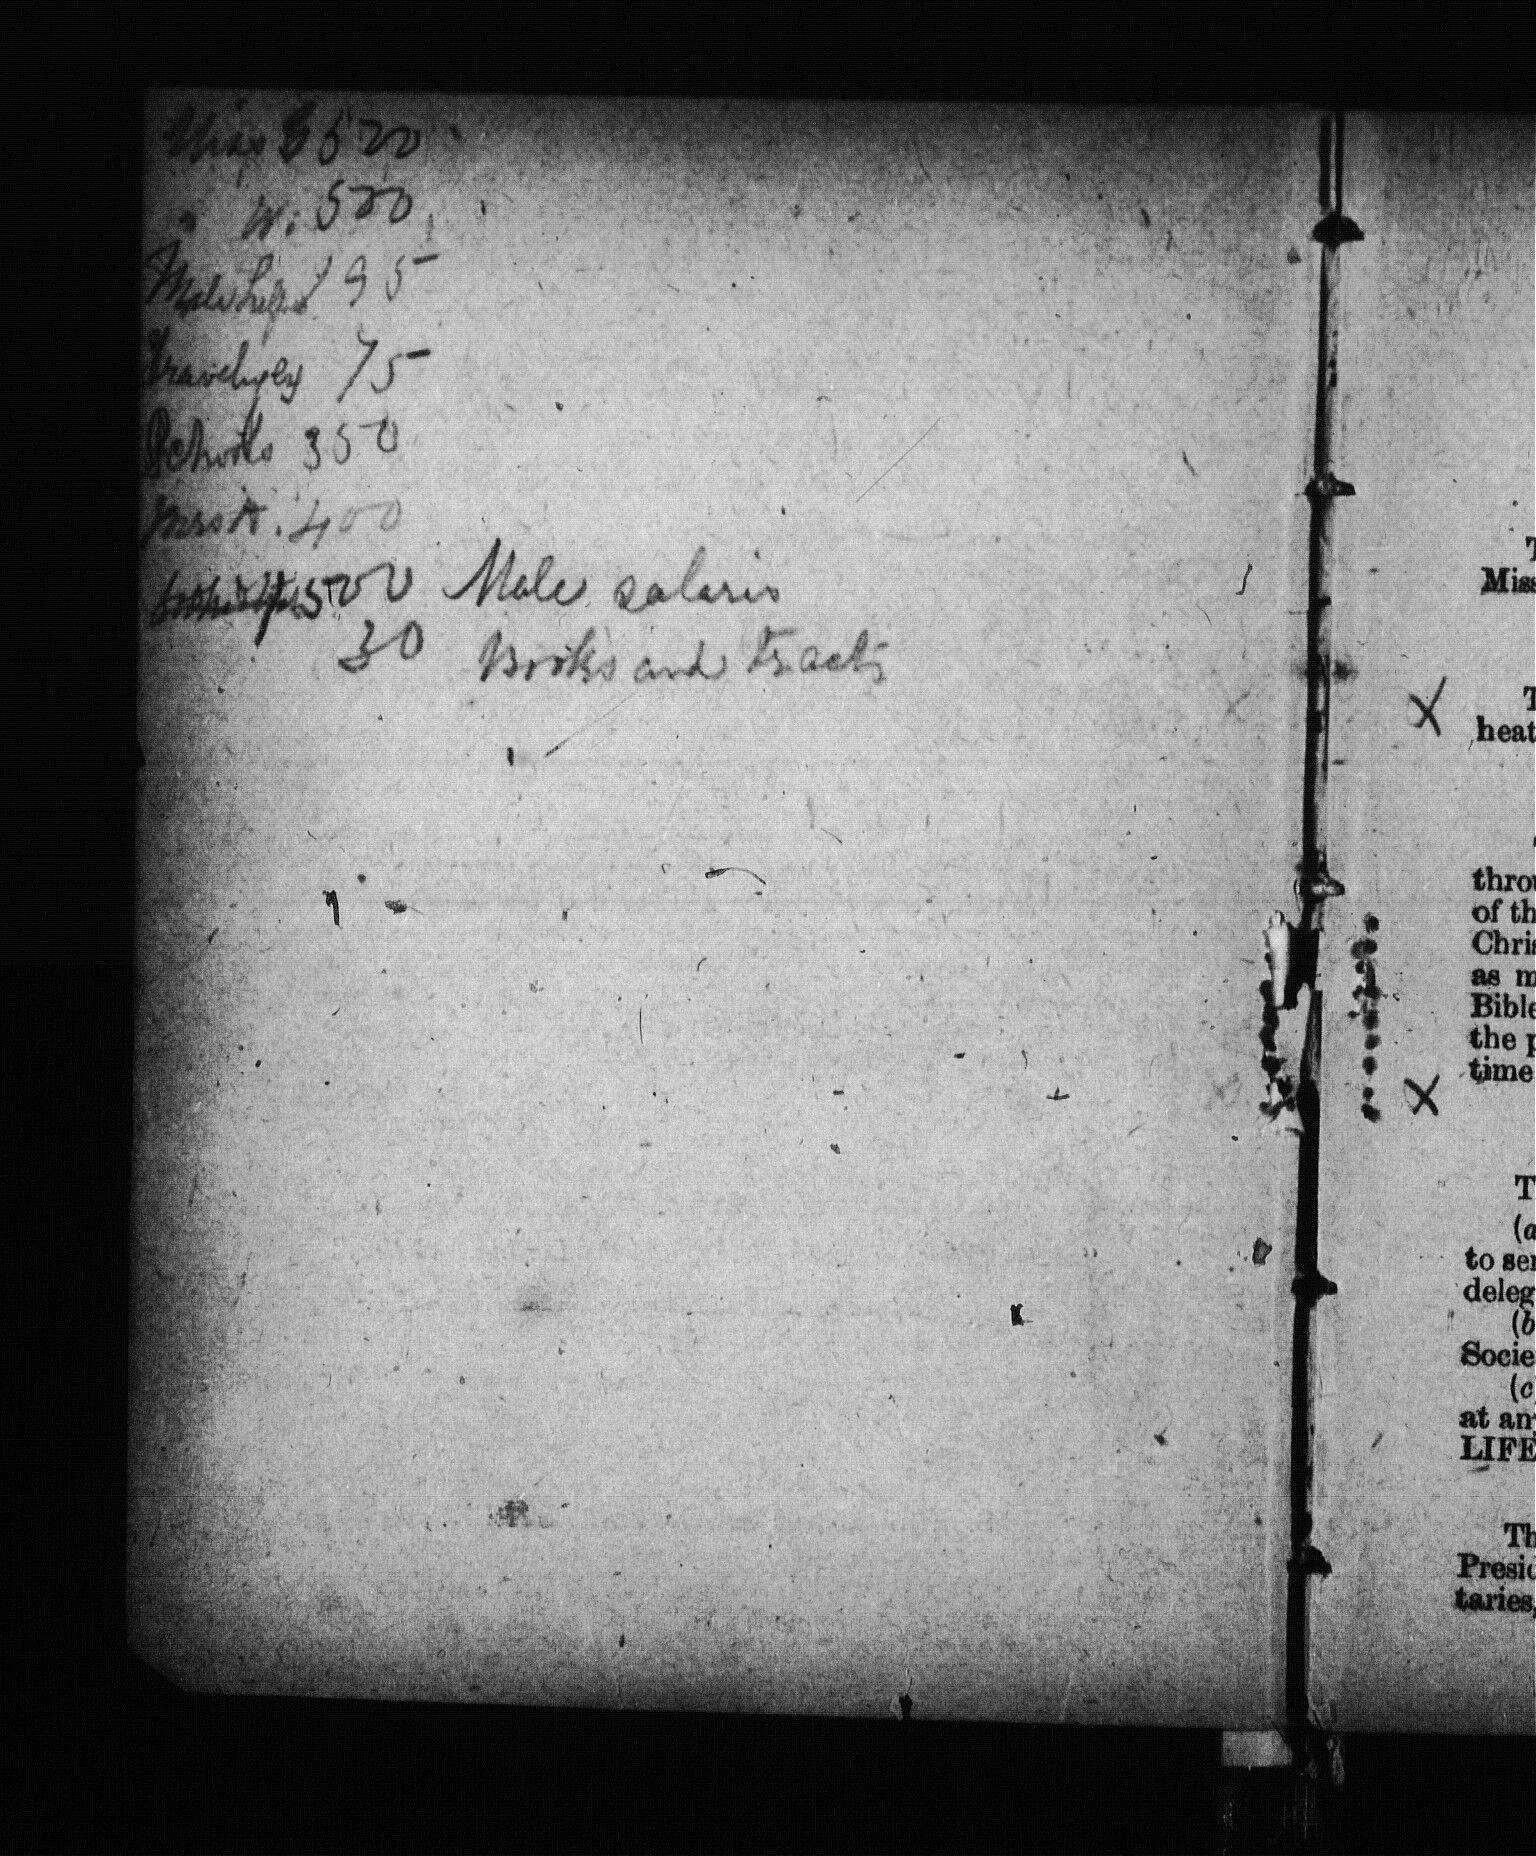 Miss G 500
" W. 500
Male helps 95
Travelg ex 75
Schools 350
Mrs A. 400
500 Male salaris
30 Books and tracts
T
Miss
T
heat
throu
of th
Chris
as m
Bible
the p
time
T
(a
to sen
deleg
(b
Socie
(c
at any
LIFE
Th
Presid
taries,